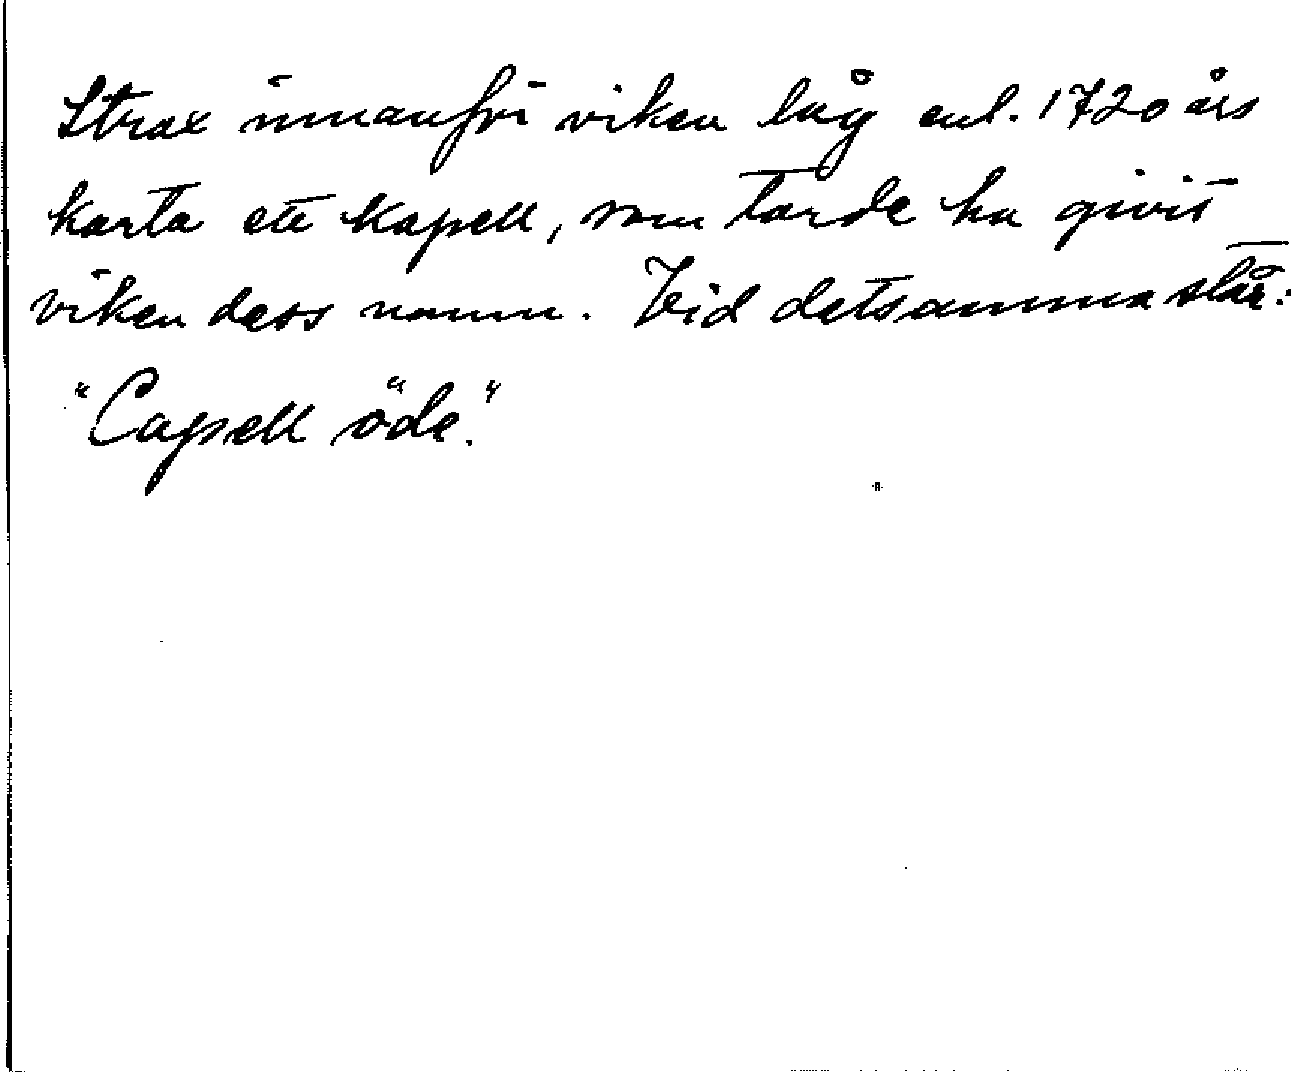 Strax innanför viken låg enl. 1720 års
karta ett kapell, som torde ha givit
viken dess namn. Vid detsamma står:
"Capell öde."